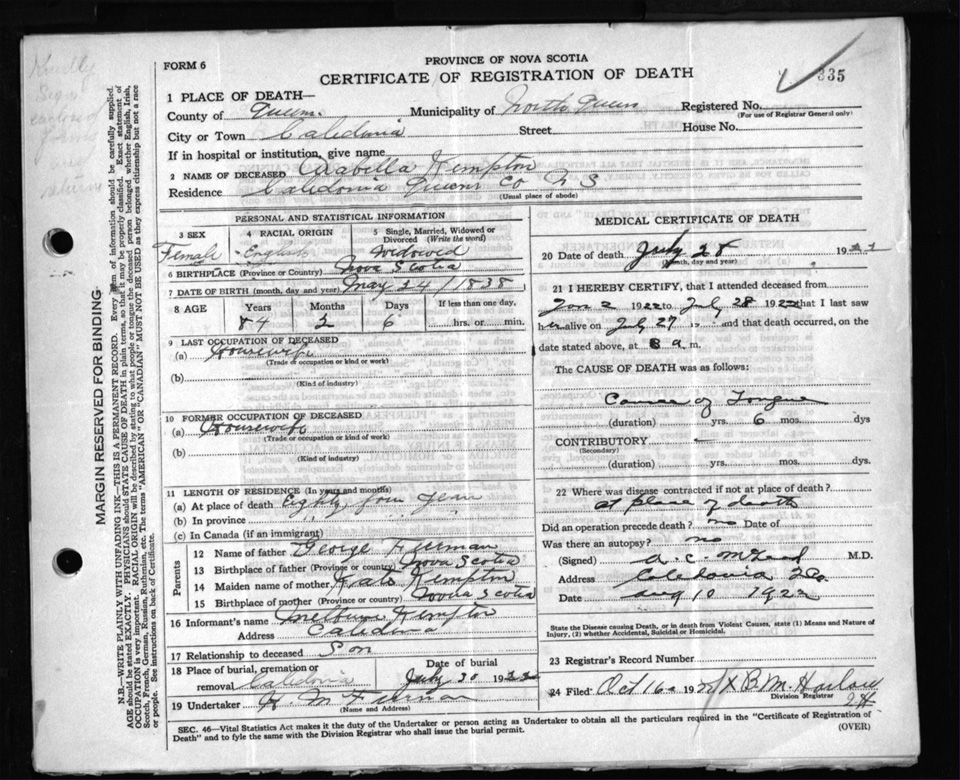 Kindly
Sign
return
MARGIN RESERVED FOR BINDING
N.B.—WRITE PLAINLY WITH UNFADING INK—THIS IS A PERMANENT RECORD. Every item of information should be carefully supplied.
AGE should be stated EXACTLY. PHYSICIANS should STATE CAUSE OF DEATH in plain terms, so that it may be properly classified. Exact statement of
OCCUPATION is very important. RACIAL ORIGIN will be described by stating to what people or tongue the deceased person belonged whether English, Irish,
Scotch, French, German, Russian, Ruthenian, etc. The terms "AMERICAN" OR "CANADIAN" MUST NOT BE USED as they express citizenship but not a race
or people. See instructions on back of Certificate.
FORM 6
PROVINCE OF NOVA SCOTIA
CERTIFICATE OF REGISTRATION OF DEATH
335
1 PLACE OF DEATH—
County of Queens Municipality of North Queens Registered No.
(For use of Registrar General only)
City or Town Caledonia Street House No.
If in hospital or institution, give name
2 NAME OF DECEASED Arabella Kempton
Residence Caledonia Queens Co N S
(Usual place of abode)
PERSONAL AND STATISTICAL INFORMATION
3 SEX 4 RACIAL ORIGIN 5 Single, Married, Widowed or Divorced (Write the word)
Female English Widowed
6 BIRTHPLACE (Province or Country) Nova Scotia
7 DATE OF BIRTH (month, day and year) May 24/1838
8 AGE Years Months Days If less than one day,
84 2 6 hrs. or min.
9 LAST OCCUPATION OF DECEASED
(a) Housewife
(Trade or occupation or kind or work)
(b)
(Kind of industry)
10 FORMER OCCUPATION OF DECEASED
(a) Housewife
(Trade or occupation or kind or work)
(b)
(Kind of industry)
11 LENGTH OF RESIDENCE (In years and months)
(a) At place of death Eighty four years
(b) In province " "
(c) In Canada (if an immigrant)
Parents
12 Name of father George Freeman
13 Birthplace of father (Province or country) Nova Scotia
14 Maiden name of mother Kate Kempton
15 Birthplace of mother (Province or country) Nova Scotia
16 Informant's name Milburn Kempton
Address Caledonia
17 Relationship to deceased Son
18 Place of burial, cremation or removal Caledonia Date of burial July 30 1922
19 Undertaker
(Name and Address)
MEDICAL CERTIFICATE OF DEATH
20 Date of death July 28 1922
(Month, day and year)
21 I HEREBY CERTIFY, that I attended deceased from
Jan 2 1922 to July 28 1922 that I last saw
her alive on July 27 " and that death occurred, on the
date stated above, at 8 a m.
The CAUSE OF DEATH was as follows:
Cancer of Tongue
(duration) yrs. 6 mos. dys
CONTRIBUTORY
(Secondary)
(duration) yrs. mos. dys.
22 Where was disease contracted if not at place of death?
at place of death
Did an operation precede death? no Date of
Was there an autopsy? no
(Signed) A. C. M.D.
Address Caledonia
Date Aug 10 1922
State the Disease causing Death, or in death from Violent Causes, state (1) Means and Nature of
Injury, (2) whether Accidental, Suicidal or Homicidal.
23 Registrar's Record Number
24 Filed: Oct 16 1922 B M Harlow
Division Registrar
SEC. 46—Vital Statistics Act makes it the duty of the Undertaker or person acting as Undertaker to obtain all the particulars required in the "Certificate of Registration of
Death" and to fyle the same with the Division Registrar who shall issue the burial permit.
(OVER)